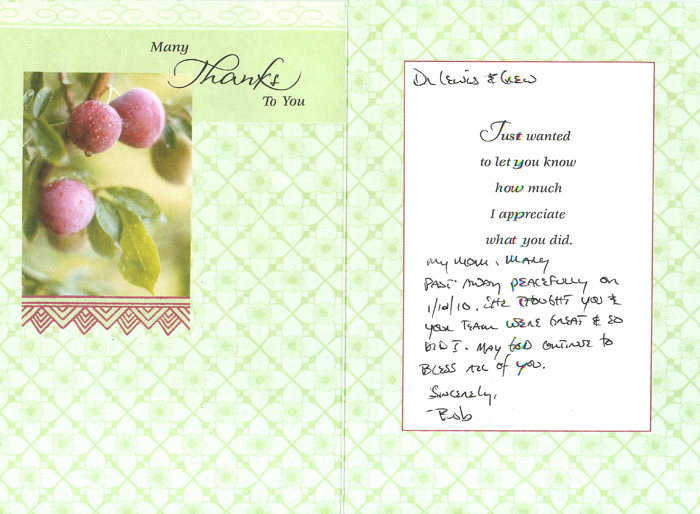 Many
Thanks
To You
Dr Lewis & Crew
Just wanted
to let you know
how much
I appreciate
what you did.
My mom, Mary
Past away peacefully on
1/10/10. She thought you &
your team were great & so
did I. May God continue to
bless all of you.
Sincerely,
-Bob